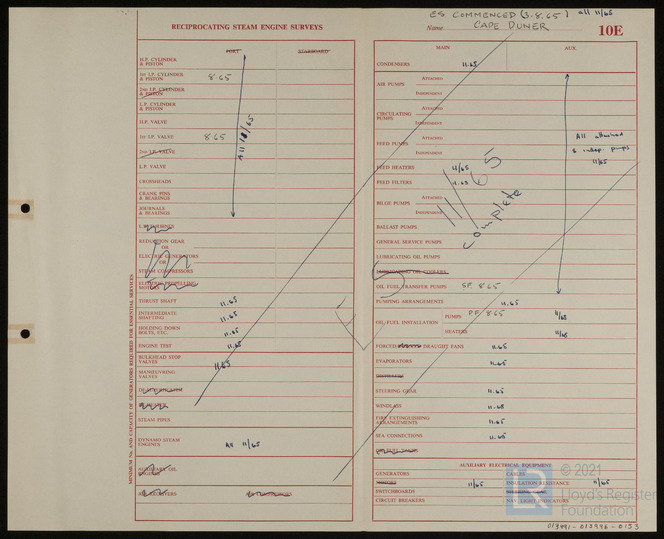 ES COMMENCED (3.8.65) all 11/65
Name CAPE DUNER
10E
RECIPROCATING STEAM ENGINE SURVEYS
PORT STARBOARD
H.P. CYLINDER & PISTON
1st I.P. CYLINDER & PISTON 8.65
2nd I.P. CYLINDER & PISTON
L.P. CYLINDER & PISTON
H.P. VALVE
1st I.P. VALVE 8.65
2nd I.P. VALVE
L.P. VALVE
CROSSHEADS
CRANK PINS & BEARINGS
JOURNALS & BEARINGS
REDUCTION GEAR
OR
ELECTRIC GENERATORS
OR
STEAM COMPRESSORS
ELECTRIC PROPELLING MOTORS
THRUST SHAFT 11.65
INTERMEDIATE SHAFTING 11.65
HOLDING DOWN BOLTS, ETC. 11.65
ENGINE TEST 11.65
BULKHEAD STOP VALVES
11.65
MANŒUVRING VALVES
STEAM PIPES
DYNAMO STEAM ENGINES All 11/65
AUXILIARY OIL ENGINES
AIR RECEIVERS
MINIMUM No. AND CAPACITY OF GENERATORS REQUIRED FOR ESSENTIAL SERVICES
MAIN AUX.
CONDENSERS 11.65
AIR PUMPS Attached
Independent
CIRCULATING PUMPS Attached
Independent
FEED PUMPS Attached
Independent
All attached
& indep. pumps
11/65
FEED HEATERS 11/65
FEED FILTERS 11.65
BILGE PUMPS Attached
Independent
11/65
complete
BALLAST PUMPS
GENERAL SERVICE PUMPS
LUBRICATING OIL PUMPS
LUBRICATING OIL COOLERS
OIL FUEL TRANSFER PUMPS SP. 8.65
PUMPING ARRANGEMENTS 11.65
OIL FUEL INSTALLATION PUMPS PP 8/65 11/65
HEATERS 11/65
FORCED DRAUGHT FANS 11.65
EVAPORATORS 11.65
STEERING GEAR 11.65
WINDLASS 11.65
FIRE EXTINGUISHING ARRANGEMENTS 11.65
SEA CONNECTIONS 11.65
AUXILIARY ELECTRICAL EQUIPMENT
GENERATORS CABLES
MOTORS 11/65 INSULATION RESISTANCE 11/65
SWITCHBOARDS
CIRCUIT BREAKERS NAV. LIGHT INDICATORS
© 2021
Lloyd's Register
Foundation
013991-013996-0153